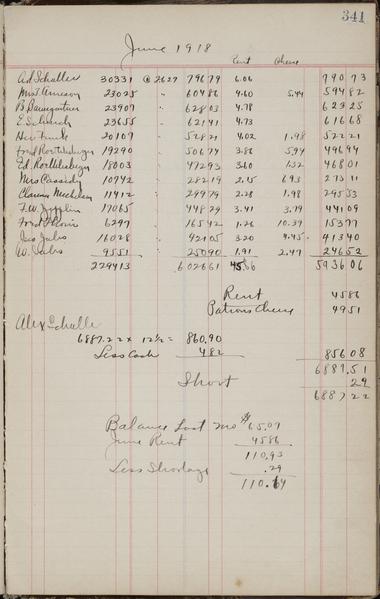 341
June 1918
Rent Cheese
Ad Schaller 30331 @ 2627 79679 6.06 79073
Mrs J. Arneson 23025 " 60486 4.60 5.44 59482
B. Baumgartner 23907 " 62803 4.78 62325
E. 23655 " 62141 4.73 61668
20107 " 52821 4.02 1.98 52221
19290 " 50674 3.86 5.94 49694
Ed. 18003 " 47293 3.60 1.32 46801
Mrs Cassidy 10742 " 28219 2.15 6.93 27311
11412 " 29979 2.28 1.98 29553
F.W. 17065 " 44829 3.41 3.79 44109
6297 " 16542 1.26 10.39 15377
Jas Julius 16028 " 42105 3.20 4.45 41340
W. Julius 9551 " 25090 1.91 2.47 24652
229413 602661 4586 593606
Rent 4586
Patrons Cheese 4951
Alex Schaller
6887.22 x 12½ = 860.90
Less Cash 4.82 85608
6887.51
Short .29
6887.22
Balance Last mo $65.07
June Rent 45.86
110.93
Less Shortage .29
110.64